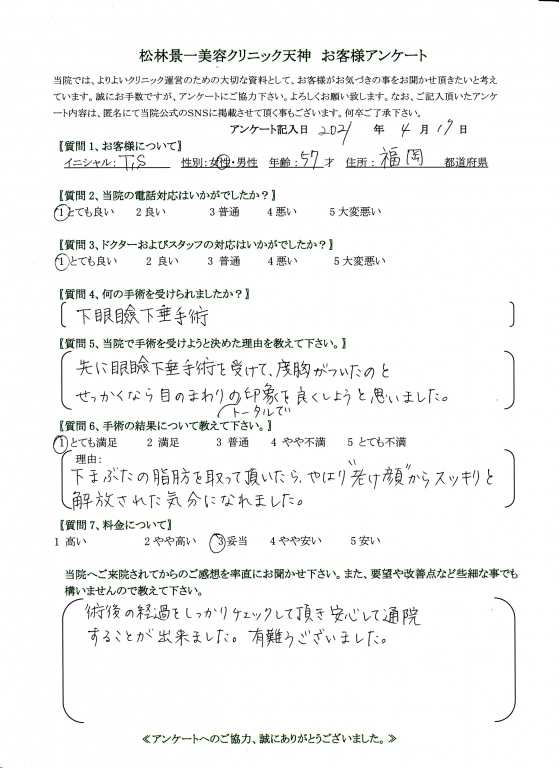 松林景一美容クリニック天神　お客様アンケート
当院では、よりよいクリニック運営のための大切な資料として、お客様がお気づきの事をお聞かせ頂きたいと考え
ています。誠にお手数ですが、アンケートにご協力下さい。よろしくお願い致します。なお、ご記入頂いたアンケ
ート内容は、匿名にて当院公式のSNSに掲載させて頂く事もございます。何卒ご了承下さい。
アンケート記入日 2021 年 4 月 17 日
【質問 1、お客様について】
イニシャル: T,S 性別:女性・男性 年齢: 57 才 住所: 福岡 都道府県
【質問 2、当院の電話対応はいかがでしたか?】
1 とても良い 2 良い 3 普通 4 悪い 5 大変悪い
【質問 3、ドクターおよびスタッフの対応はいかがでしたか?】
1 とても良い 2 良い 3 普通 4 悪い 5 大変悪い
【質問 4、何の手術を受けられましたか?】
下眼瞼下垂手術
【質問 5、当院で手術を受けようと決めた理由を教えて下さい。】
先に眼瞼下垂手術を受けて、度胸がついたのと
せっかくなら目のまわりの印象を良くしようと思いました。
トータルで
【質問 6、手術の結果について教えて下さい。】
1 とても満足 2 満足 3 普通 4 やや不満 5 とても不満
理由:
下まぶたの脂肪を取って頂いたら、やはり"老け顔"からスッキリと
解放された気分になれました。
【質問 7、料金について】
1 高い 2 やや高い 3 妥当 4 やや安い 5 安い
当院へご来院されてからのご感想を率直にお聞かせ下さい。また、要望や改善点など些細な事でも
構いませんので教えて下さい。
術後の経過をしっかりチェックして頂き安心して通院
することが出来ました。有難うございました。
≪アンケートへのご協力、誠にありがとうございました。≫